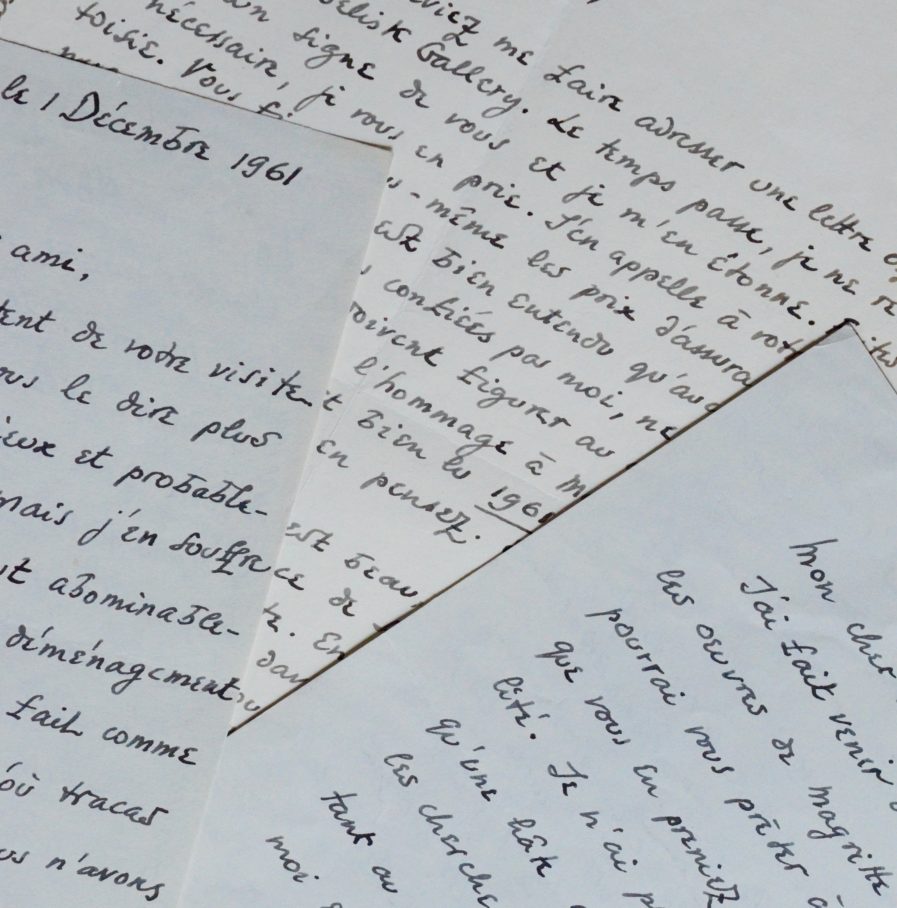 le 1 Décembre 1961
ami,
de votre visite
le dire plus
et probable-
mais j'en souffre
abominable-
déménagement
fait comme
où tracas
n'avons
me faire adresser une lettre
Gallery. Le temps passe, je ne
signe de vous et je m'en étonne.
nécessaire, je vous en prie. J'en appelle à
toisie. Vous -même les prix d'assura
est bien entendu qu'aux
confiés par moi, ne
figurer au
l'hommage à M
bien lu 1961
en pensez.
est beau,
ce de
te. En
dans
mon cher
J'ai fait venir
les oeuvres de magritte
pourrai vous prêter à
que vous en preniez
lité. Je n'ai
qu'une hâte
les cherche
tant
moi